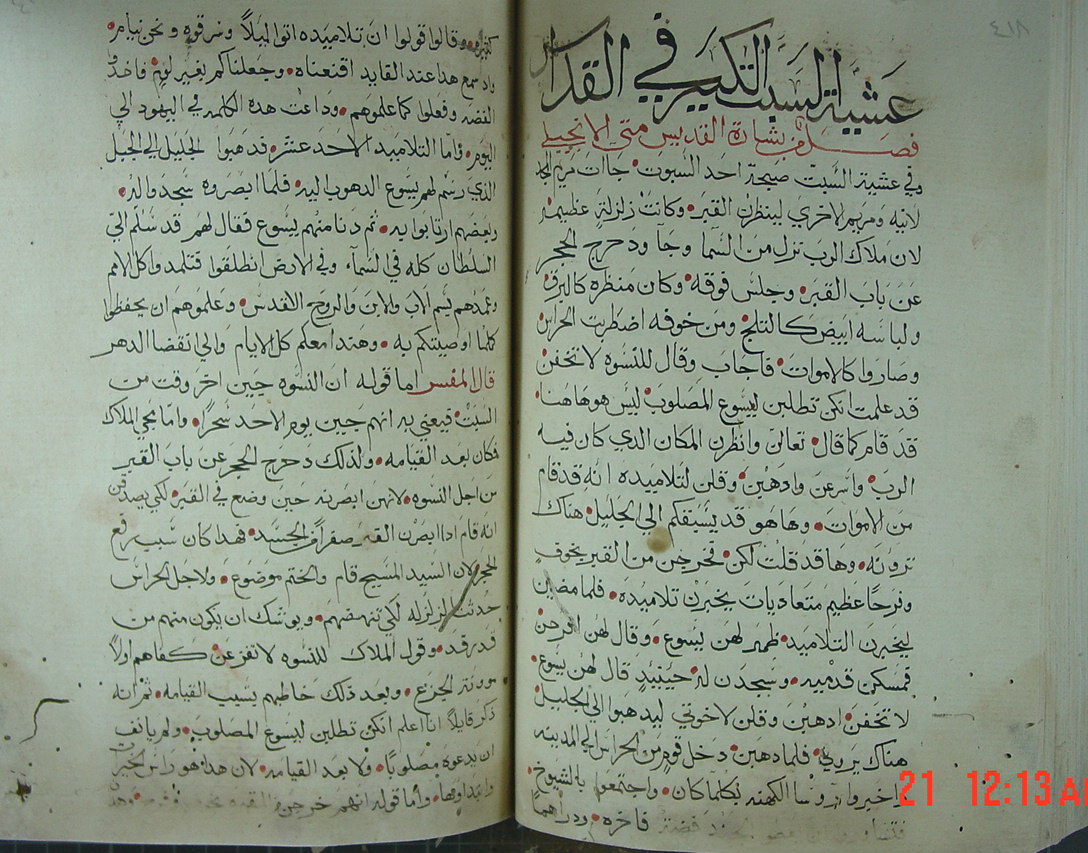 عشية السبت الكبير في القداس
فصل من بشارة القديس متى الانجيلي
وفي عشية السبت صبيحة احد السبوت جاات مريم المجد
لانيه ومريم الاخري لينظرن القبر وكانت زلزلة عظيمة
لان ملاك الرب نزل من السما وجا ودحرج الحجر
عن باب القبر وجلس فوقه وكان منظره كالبرق
ولباسه ابيض كالتلج ومن خوفه اضطربت الحراس
وصاروا كالاموات فاجاب وقال للنسوه لا تخفن
قد علمت انكن تطلبن ليسوع المصلوب ليس هو هاهنا
قد قام كما قال تعالن وانظرن المكان الدي كان فيه
الرب واسرعن وادهبن وقلن لتلاميده انه قد قام
من الاموات وها هو قد يسبقكم الي الجليل هناك
ترونه وها قد قلت لكن فخرجن من القبر بخوف
وفرحا عظيم متعاديات يخبرن تلاميده فلما مضين
ليخبرن التلاميد ظهر لهن يسوع وقال لهن افرحن
فمسكن قدميه وسجدن له حينيد قال لهن يسوع
لا تخفن ادهبن وقلن لاخوتي ليدهبوا الي الجليل
هناك يروني فلما دهبن دخل قوم من الحراس الي المدينه
واخبروا روسا الكهنه بكلما كان واجتمعوا بالشيوخ
فاخره ودراهما
كثيره وقالوا قولوا ان تلاميده اتوا ليلا وسرقوه ونحن نيام
وادسمع هدا عند القايد اقنعناه وجعلناكم بغير لوم فاخدو
الفضه وفعلوا كما علموهم وداعت هده الكلمه في اليهود الي
اليوم واما التلاميد الاحد عشر فدهبوا الجليل الي الجبل
الدي رسم لهم يسوع الدهوب اليه فلما ابصروه سجدوا له
وبعضهم ارتابوا به تم دنا منهم يسوع فقال لهم قد سلم الي
السلطان كله في السماء وفي الارض انطلقوا فتلمدوا كل الامم
وعمدهم بسم الاب والابن والروح القدس وعلموهم ان يحفظوا
كلما اوصيتكم به وهندا معكم كل الايام والي انقضا الدهر
قال المفسر اما قوله ان النسوه جين اخر وقت من
السبت فيعني به انهم جين يوم الاحد سحرا واما مجي الملاك
فكان بعد القيامه ولدلك دحرج الحجر عن باب القبر
من اجل النسوه لانهن ابصرنه حين وضع في القبر لكي يصدقن
انه قام ادا ابصرن القبر صفرا من الجسد فهدا كان سبب رفع
الحجر لان السيد المسيح قام والختم موضوع ولاجل الحراس
حدثت الزلزله لكي تنهضهم ويوشك ان يكون منهم من
قد رقد وقول الملاك للنسوه لا تفزعن كفاهم اولا
مونة الجزع وبعد دلك خاطبهم بسبب القيامه ثم انه
دكر قايلا انا اعلم انكن تطلبن ليسوع المصلوب ولم يانف
ان يدعوه مصلوبا ولا بعد القيامه لان هدا هو راس الخيرات
واما قوله انهم خرجن
21 12:13 AM